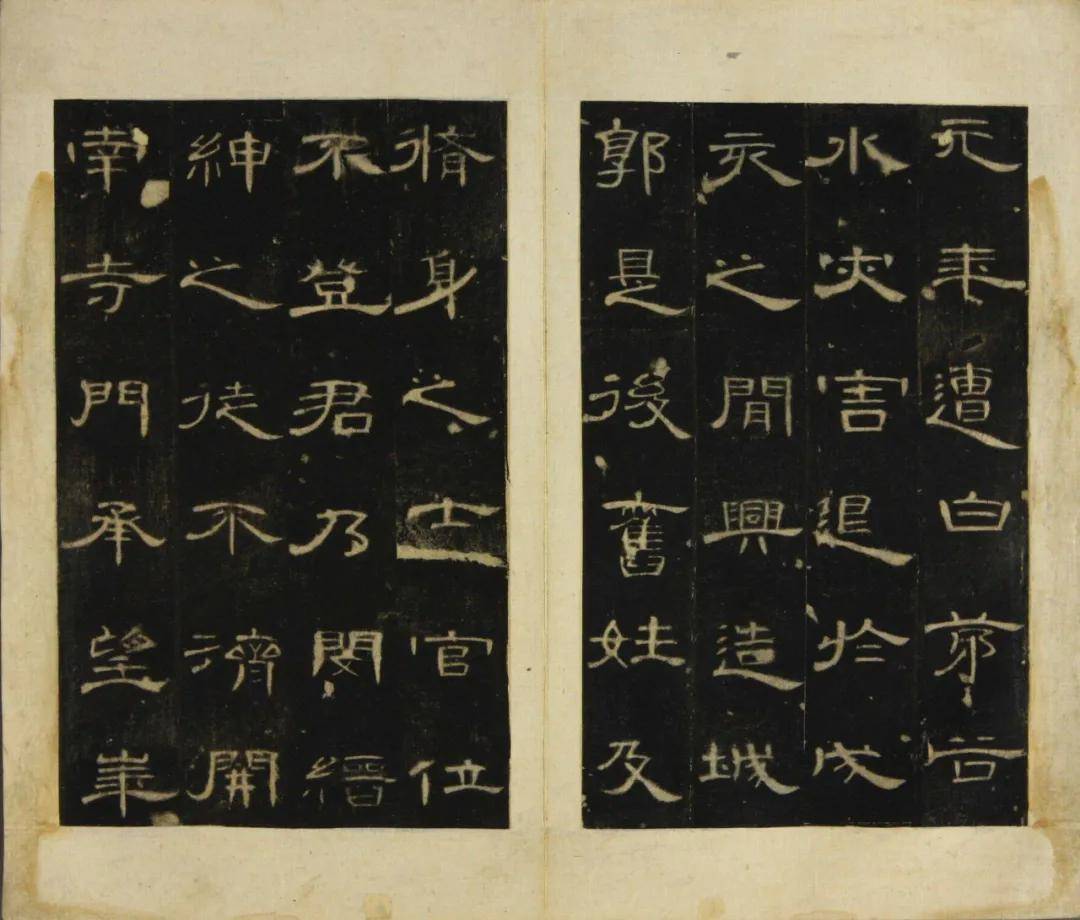 元来遭白茅谷
水灾害退於戌
亥之閒興造城
郭是後舊姓及
脩身之士官位
不登君乃閔縉
紳之徒不濟開
南寺門承望華